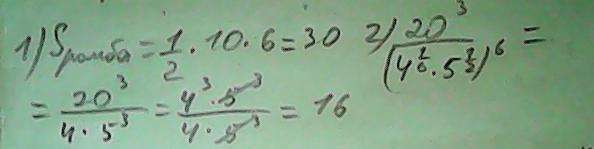 1) Sромба = 1/2 · 10 · 6 = 30 2) 20³/(4^(1/6) · 5^(1/2))⁶ =
= 20³/(4 · 5³) = (4³ · 5³)/(4 · 5³) = 16